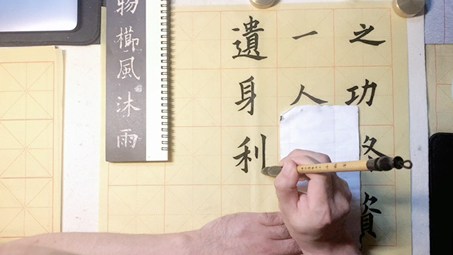 之功資
一人
遺身利
物櫛風沐雨